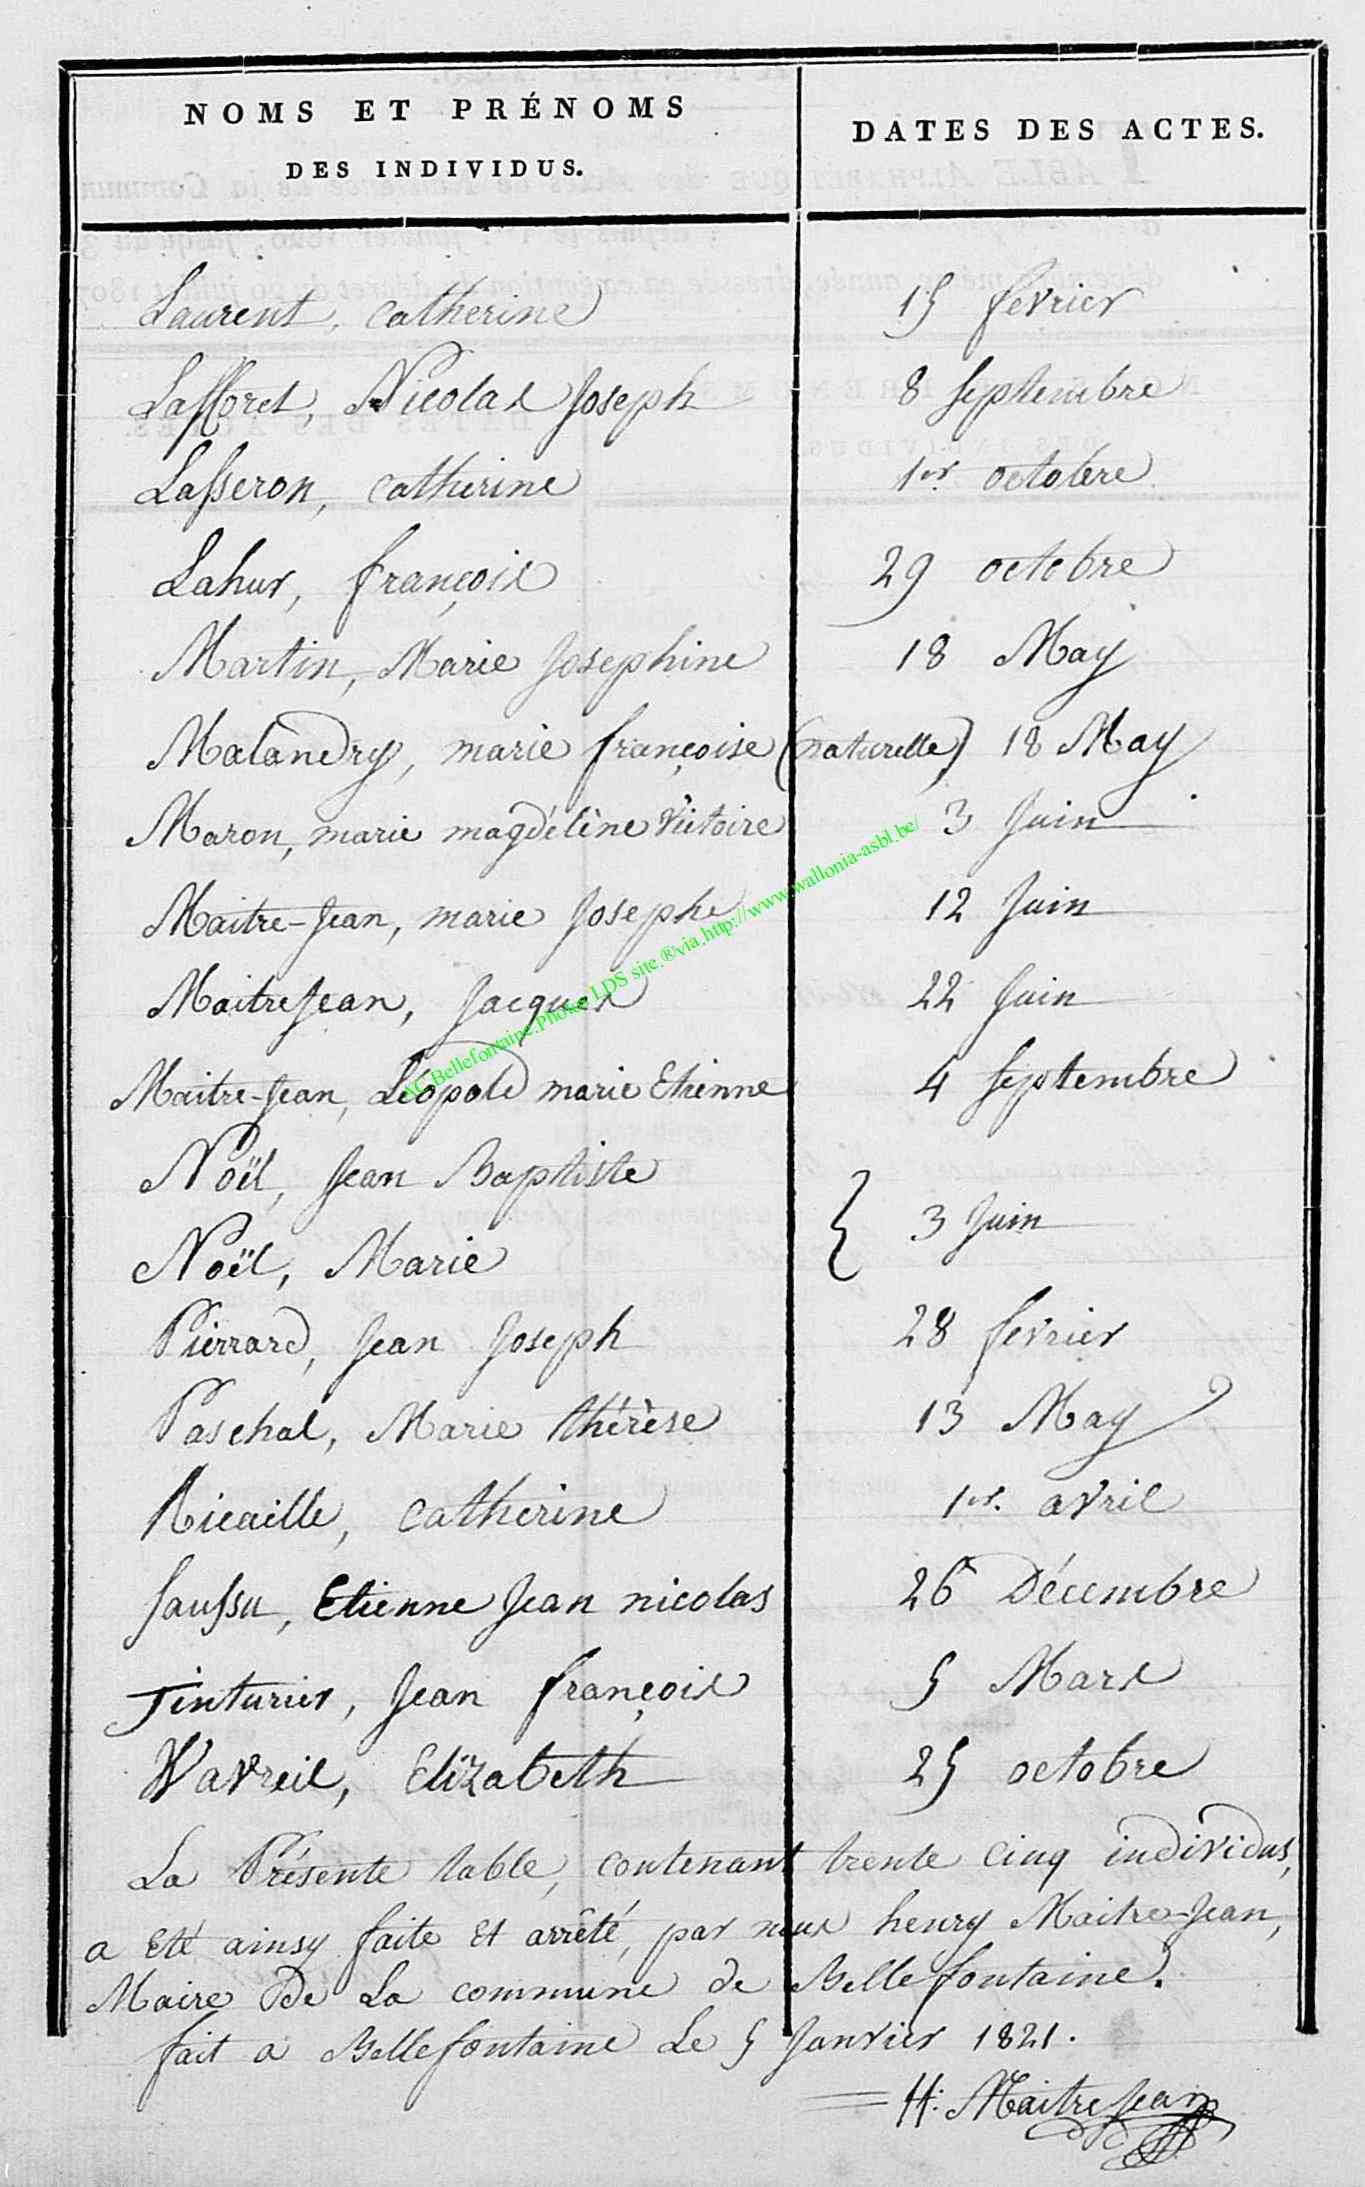 NOMS ET PRÉNOMS
DES INDIVIDUS.
DATES DES ACTES.
Laurent, catherine 15 fevrier
Lafforet, Nicolas Joseph 8 Septembre
Lasseron, catherine 1er octobre
Lahur, françois 29 octobre
Martin, Marie Josephine 18 May
Malandry, marie françoise (naturelle) 18 May
Maron, marie magdélène Victoire 3 Juin
Maitre-Jean, marie Josephe 12 Juin
MaitreJean, Jacques 22 Juin
Maitre-Jean, Léopold marie Etienne 4 Septembre
Noël, Jean Baptiste
} 3 Juin
Noël, Marie
Pierrard, Jean Joseph 28 fevrier
Paschal, Marie thérèse 13 May
Ricaille, catherine 1er avril
Saussu, Etienne Jean nicolas 26 Décembre
Tinturier, Jean françois 5 Mars
Wavreil, Elizabeth 25 octobre
La Présente table, contenant trente cinq individus,
a Eté ainsy faite Et arrêté, par nous henry Maitre-Jean,
Maire de La commune de Bellefontaine.
fait a Bellefontaine Le 5 Janvier 1821.
H: MaitreJean
AC Bellefontaine.Photos LDS site.®via http://www.wallonia-asbl.be/